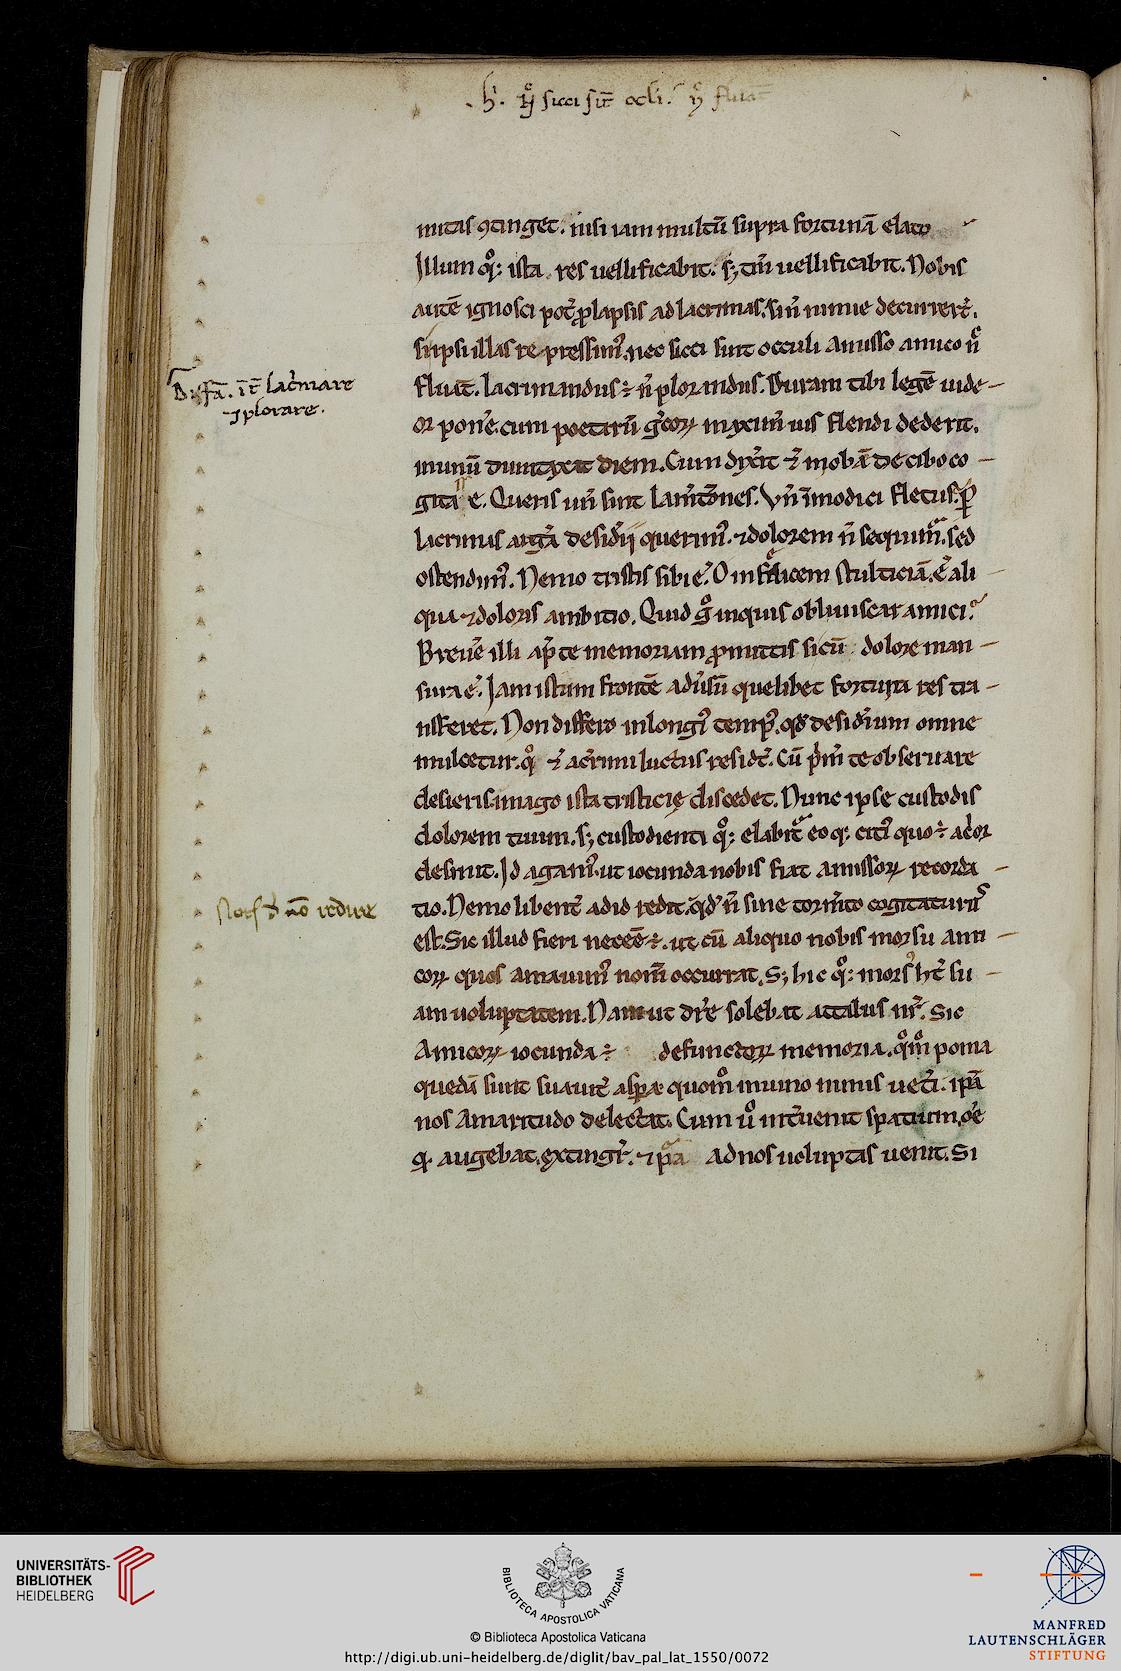 .h. qo sicci sīt ocl'i. n̄ fluāt
mitas 9tinget. nisi iam multū supra fortunā elato
Illum qq: ista res uellificabit. s; tm̄ uellificabit. Nobis
autē ignosci pot̄ prolapsis ad lacrimas. si n̄ nimie decurrer̄t.
si ipsi illas re pressim9. nec sicci sint occuli amisso amico n̄
fluāt. lacrimandus ÷ n̄ plorandus. Duram tibi legē uide-
Dif̄fa. īt lac̄mare
⁊ plorare.
or pon̄e. cum poetarū g̃corꝝ maxim9 ius flendi dederit.
inunū dumtaxat diem. Cum dix̄it ⁊ niobā de cibo co-
gitasse. Queris un̄ sint lam̄tōnes. Vn̄ īmodici fletus. ꝑ
lacrimas arg̃a desid̄ii querim9. ⁊ dolorem n̄ sequim̃. sed
ostendim9. Nemo tristis sibi ē. O infęlicem stulticiā. ē ali-
qua ⁊ doloris ambitio. Quid g̊ inquis obliuiscar amici?
Breuē illi ap̄ te memoriam promittis si cū dolore man-
sura ē. Iam istam frontē adūsū quelibet fortuita res tra-
nsferet. Non differo in long9 temp9. qđ desid̄ium omne
mulcetur. qo ⁊ acr̄imi luctus resid̄t. Cū p̄m te obseruare
desieris. imago ista tristicię discedet. Nunc ipse custodis
dolorem tuum. s; custodienti qq: elabit̃ eoq: citi9 quo ÷ ac̄or
desinit. Id agam9. ut iocunda nobis fiat amissorꝝ recorda-
tio. Nemo libent̄ ad id redit. qđ n̄ sine torm̄to cogitaturus
est. Sic illud fieri necēē ÷. ut cū aliquo nobis morsu ami-
corꝝ quos amauim9 nom̄ occurrat. S; hic qq: mors9 h̄t su-
am uoluptatem. Nam ut dr̄e solebat attalus nr̄. Sic
Amicorꝝ iocunda ÷ defunctorꝝ memoria. qom̊ poma
quedā sunt suauit̄ aspera quom̊ in uino nimis uet̄i. ipā
nos Amaritudo delectat. Cum ū int̄uenit spatium. oē
q: augebat. extingr̃. ⁊ pura ad nos uoluptas uenit. Si
UNIVERSITÄTS-
BIBLIOTHEK
HEIDELBERG
BIBLIOTECA APOSTOLICA VATICANA
© Biblioteca Apostolica Vaticana
http://digi.ub.uni-heidelberg.de/diglit/bav_pal_lat_1550/0072
MANFRED
LAUTENSCHLÄGER
STIFTUNG